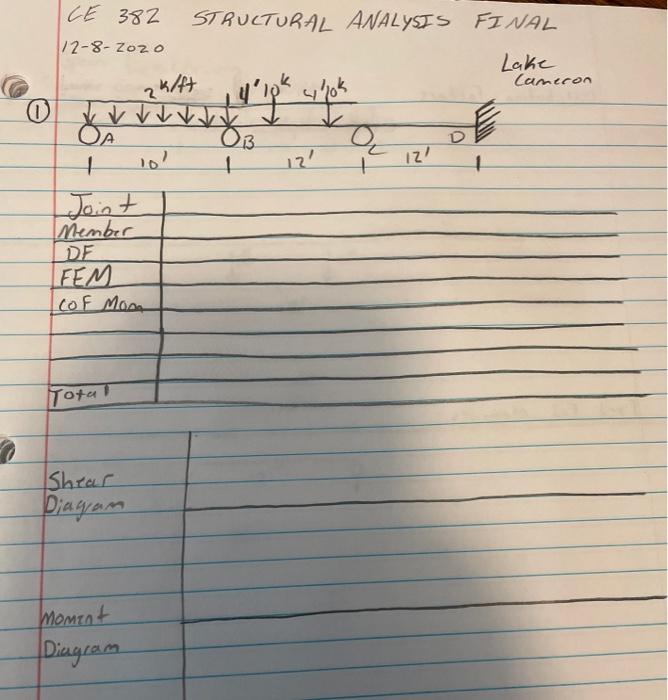 CE 382 STRUCTURAL ANALYSIS FINAL
12-8-2020
Lake
Cameron
2 k/ft 4' 10k 4' 10k
① A B C D
10' 12' 12'
Joint
Member
DF
FEM
COF Mom
Total
Shear
Diagram
Moment
Diagram